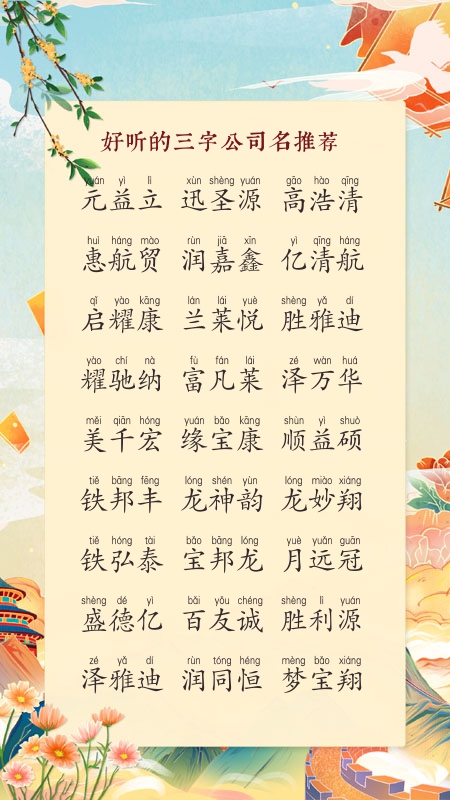 好听的三字公司名推荐
yuán yì lì xùn shèng yuán gāo hào qīng
元益立 迅圣源 高浩清
huì háng mào rùn jiā xīn yì qīng háng
惠航贸 润嘉鑫 亿清航
qǐ yào kāng lán lái yuè shèng yǎ dí
启耀康 兰莱悦 胜雅迪
yào chí nà fù fán lái zé wàn huá
耀驰纳 富凡莱 泽万华
měi qiān hóng yuán bǎo kāng shùn yì shuò
美千宏 缘宝康 顺益硕
tiě bāng fēng lóng shén yùn lóng miào xiáng
铁邦丰 龙神韵 龙妙翔
tiě hóng tài bǎo bāng lóng yuè yuǎn guān
铁弘泰 宝邦龙 月远冠
shèng dé yì bǎi yǒu chéng shèng lì yuán
盛德亿 百友诚 胜利源
zé yǎ dí rùn tóng héng mèng bǎo xiáng
泽雅迪 润同恒 梦宝翔